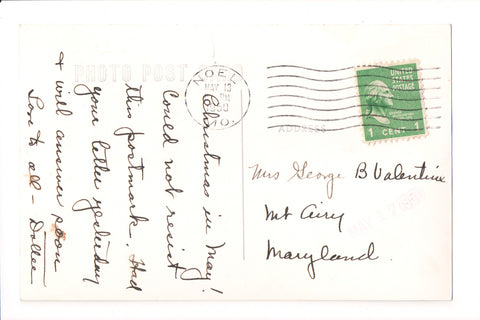 PHOTO POST
NOEL
MAY 13
PM
MO.
UNITED
STATES
POSTAGE
1 CENT 1
ADDRESS
Christmas in May!
Could not resist
this postmark. Had
your letter yesterday
& will answer soon
Love to all - Dollee
Mrs George B Valentine
Mt Airy
Maryland.